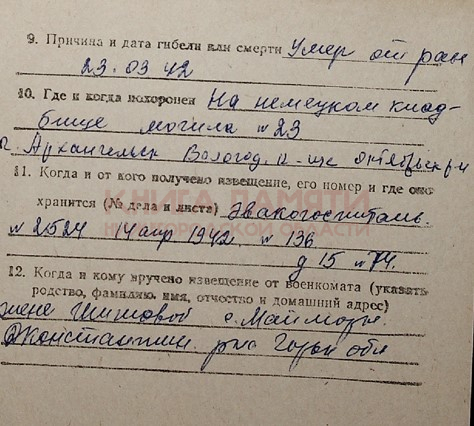 9. Причина и дата гибели или смерти Умер от ран
23.03 42
10. Где и когда похоронен На немецком клад-
бище могила №23
г. Архангельск Вологод. Октябрьск
11. Когда и от кого получено извещение, его номер и где оно
хранится (№ дела и листа) Эвакогоспиталь.
КНИГА ПАМЯТИ
НИЖЕГОРОДСКОЙ ОБЛАСТИ
№ 2524 14 апр 1942. № 136
д 15 л 74.
12. Когда и кому вручено извещение от военкомата (указать
родство, фамилию, имя, отчество и домашний адрес)
жене Шишовой с. Маймо
Д Константин. р-на Горьк обл